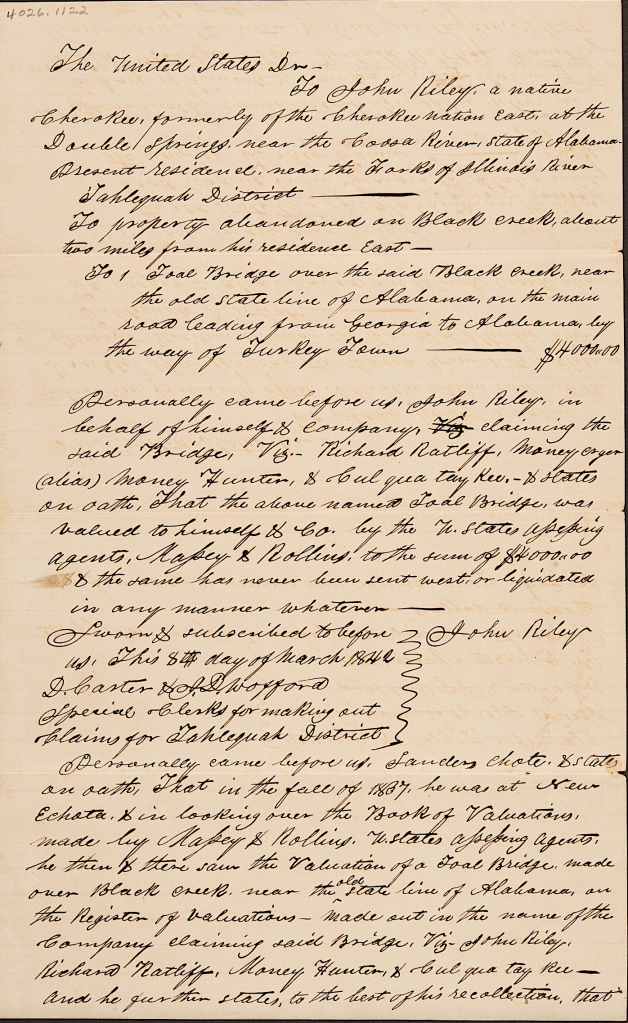 4026.1122
The United States Dr—
To John Riley, a native
Cherokee, formerly of the Cherokee nation East, at the
Double Springs, near the Coosa River, State of Alabama-
Present residence, near the Forks of Illinois River
Tahlequah District —
To property abandoned on Black creek, about
two miles from his residence East—
To 1 Toal Bridge over the said Black creek, near
the old state line of Alabama, on the main
road leading from Georgia to Alabama, by
the way of Turkey Town — $4000.00
Personally came before us, John Riley, in
behalf of himself & company, Viz claiming the
said Bridge, Viz- Richard Ratliff, Money cryer
(alias) Money Hunter, & Cul qua tay Kee,- & states
on oath, That the above named Toal Bridge, was
valued to himself & Co. by the U. States assessing
agents, Massey & Rollins, to the sum of $4000.00
& the same has never been sent west, or liquidated
in any manner whatever —
Sworn & subscribed to before John Riley
us, This 8th day of March 1842
D. Carter & J.D. Wofford
Special Clerks for making out
Claims for Tahlequah District
Personally came before us, Sanders Chote, & states
on oath, That in the fall of 1837, he was at New
Echota, & in looking over the Book of Valuations,
made by Massey & Rollins, U. states assessing Agents,
he then & there saw the Valuation of a Toal Bridge, made
over Black creek, near the old state line of Alabama, on
the Register of valuations - made out in the name of the
Company claiming said Bridge, Viz- John Riley,
Richard Ratliff, Money Hunter, & Cul qua tay Kee —
And he further states, to the best of his recollection, that